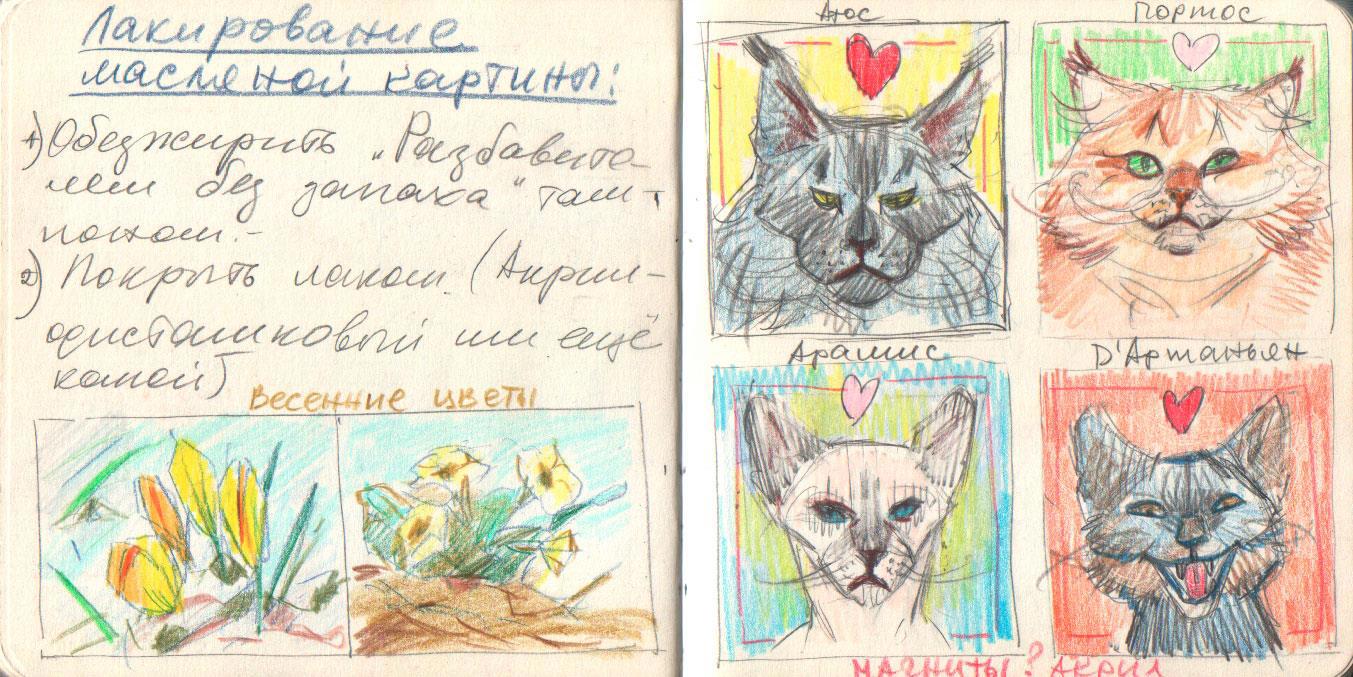 Лакирование
масляной картины:
1) Обезжирить „Разбавите-
лем без запаха" там-
поном.-
2) Покрыть лаком. (Акрил-
фисташковый или ещё
какой)
Весенние цветы
Атос
Портос
Арамис
Д'Артаньян
МАГНИТЫ? АКРИЛ